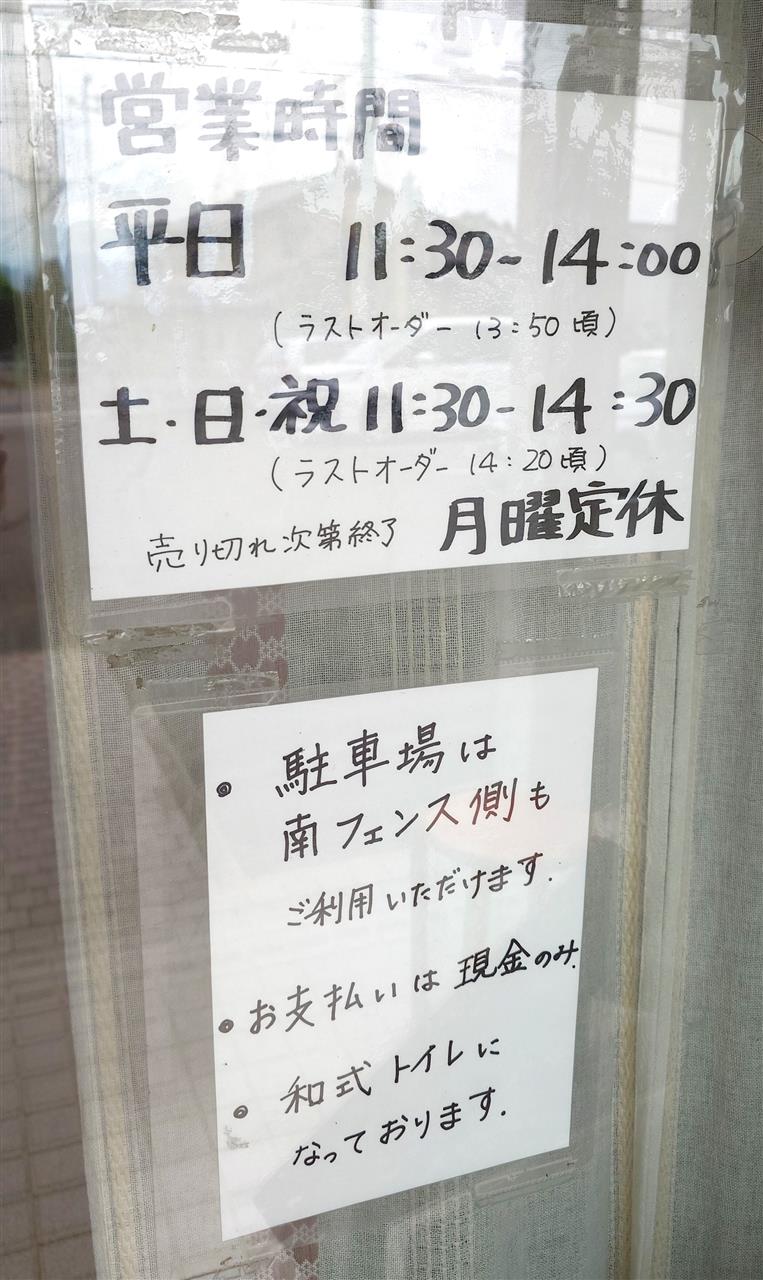 営業時間
平日 11:30~14:00
(ラストオーダー 13:50頃)
土・日・祝 11:30-14:30
(ラストオーダー 14:20頃)
売り切れ次第終了 月曜定休
・駐車場は
南フェンス側も
ご利用いただけます.
・お支払いは現金のみ.
・和式トイレに
なっております.